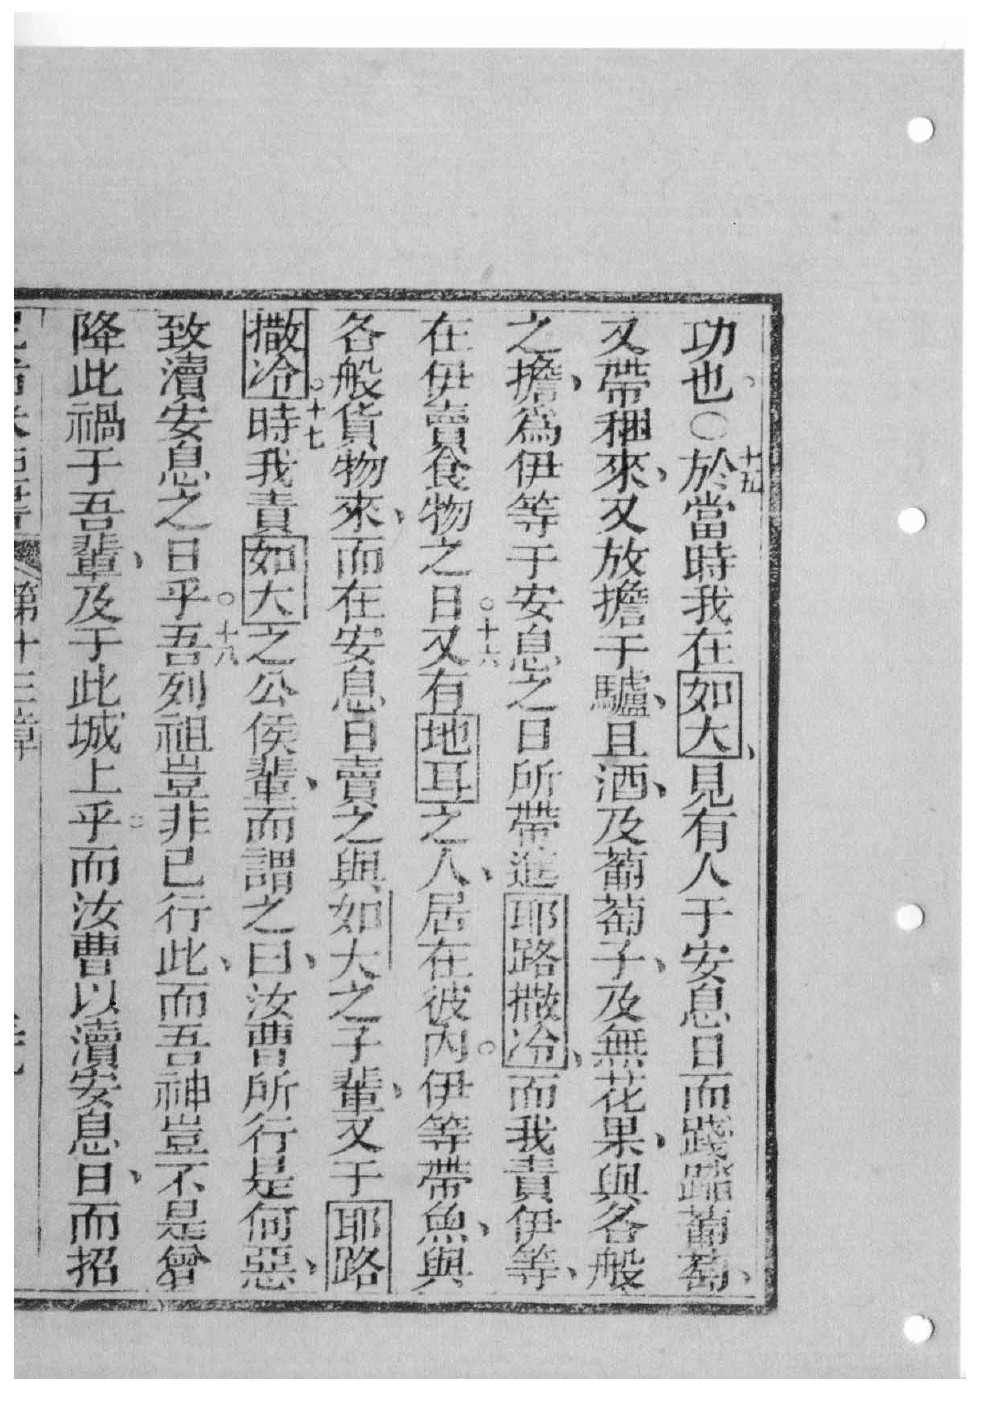 功也、○十五於當時我在如大、見有人于安息日而踐踏葡萄、
又帶稇來、又放擔于驢、且酒、及葡萄子、及無花果、與各般
之擔、為伊等于安息之日所帶進耶路撒冷、而我責伊等、
在伊賣食物之日。十六又有地耳之人、居在彼內。伊等帶魚、與
各般貨物來、而在安息日賣之與如大之子輩、又于耶路
撒冷。十七時我責如大之公侯輩、而謂之曰、汝曹所行是何惡、
致瀆安息之日乎。十八吾列祖豈非已行此、而吾神豈不是曾
降此禍于吾輩、及于此城上乎。而汝曹以瀆安息日、而招
第十三章